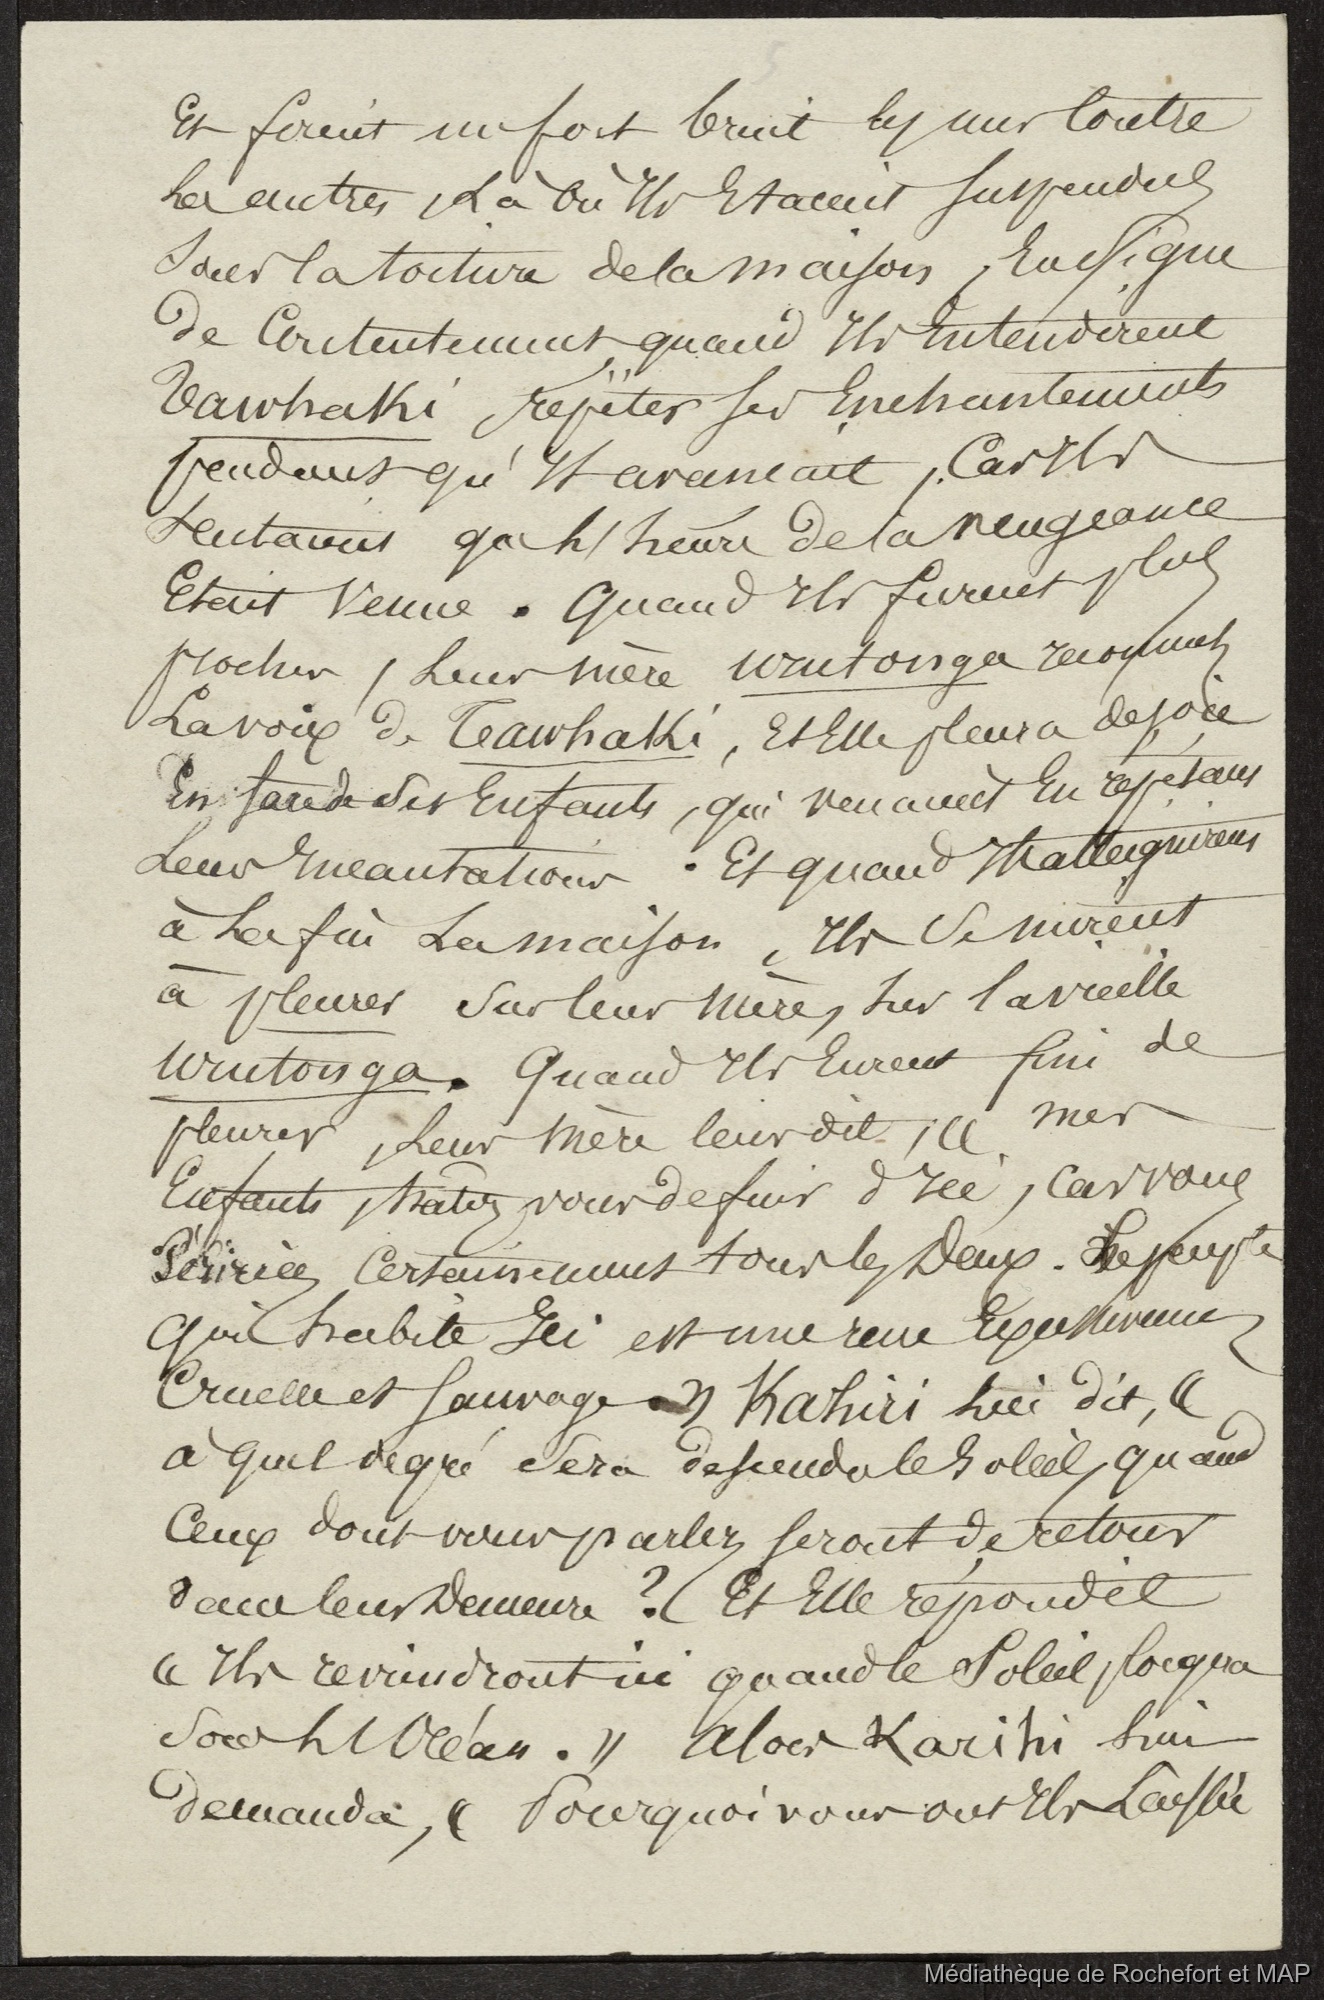 5
Et firent un fort bruit les uns Contre
les autres, Là où Ils Etaient suspendus
Sous la toiture de la maison, En Signe
de Contentement, quand Ils Entendirent
Tawhaki répéter ses Enchantements
pendant qu'Il avançait, Car Ils
Sentaient que l'heure de la vengeance
Etait Venue. Quand Ils furent plus
proches, Leur mère Urutonga reconnut
La voix de Tawhaki, Et Elle pleura de joie
En face de Ses Enfants, qui venaient En répétant
Leurs Incantations. Et quand Ils atteignirent
à La fin La maison, Ils Se mirent
à pleurer Sur leur Mère, Sur la vieille
Urutonga. Quand Ils Eurent fini de
pleurer, Leur Mère leur dit, « mes
Enfants, hatez vous de fuir d'Ici, Car vous
Péririez Certainement tous les Deux. Le peuple
qui habite Ici est une race Excessivement
Cruelle et Sauvage. » Kahiri lui dit, «
à quel degré Sera descendu le Soleil, quand
Ceux dont vous parlez seront de retour
dans leur Demeure ? ( Et Elle répondit
« Ils reviendront ici quand le Soleil plongera
Sous l'Océan. » Alors Karihi lui
demanda, « Pourquoi vous ont Ils Laissée
Médiathèque de Rochefort et MAP